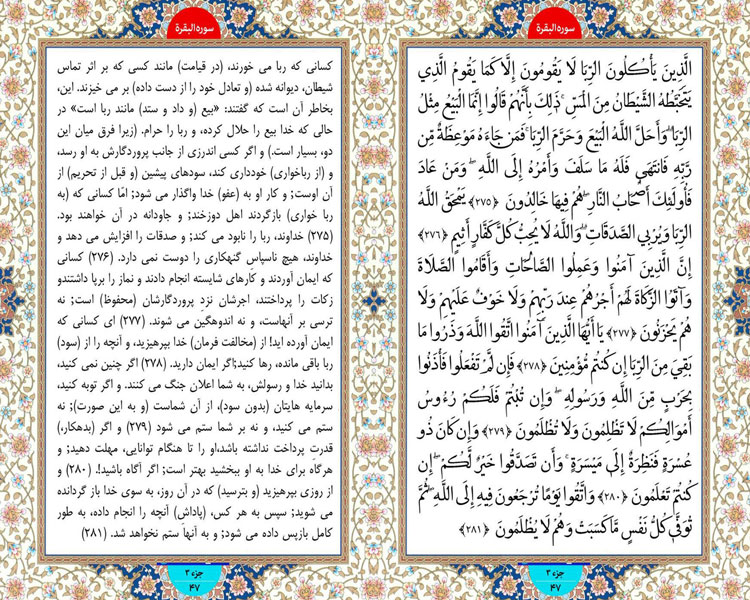 سورةالبقرة
الَّذِينَ يَأْكُلُونَ الرِّبَا لَا يَقُومُونَ إِلَّا كَمَا يَقُومُ الَّذِي
يَتَخَبَّطُهُ الشَّيْطَانُ مِنَ الْمَسِّ ۚ ذَٰلِكَ بِأَنَّهُمْ قَالُوا إِنَّمَا الْبَيْعُ مِثْلُ
الرِّبَا ۗ وَأَحَلَّ اللَّهُ الْبَيْعَ وَحَرَّمَ الرِّبَا ۚ فَمَن جَاءَهُ مَوْعِظَةٌ مِّن
رَّبِّهِ فَانتَهَىٰ فَلَهُ مَا سَلَفَ وَأَمْرُهُ إِلَى اللَّهِ ۖ وَمَنْ عَادَ
فَأُولَٰئِكَ أَصْحَابُ النَّارِ ۖ هُمْ فِيهَا خَالِدُونَ ﴿۲۷۵﴾ يَمْحَقُ اللَّهُ
الرِّبَا وَيُرْبِي الصَّدَقَاتِ ۗ وَاللَّهُ لَا يُحِبُّ كُلَّ كَفَّارٍ أَثِيمٍ ﴿۲۷۶﴾
إِنَّ الَّذِينَ آمَنُوا وَعَمِلُوا الصَّالِحَاتِ وَأَقَامُوا الصَّلَاةَ
وَآتَوُا الزَّكَاةَ لَهُمْ أَجْرُهُمْ عِندَ رَبِّهِمْ وَلَا خَوْفٌ عَلَيْهِمْ وَلَا
هُمْ يَحْزَنُونَ ﴿۲۷۷﴾ يَا أَيُّهَا الَّذِينَ آمَنُوا اتَّقُوا اللَّهَ وَذَرُوا مَا
بَقِيَ مِنَ الرِّبَا إِن كُنتُم مُّؤْمِنِينَ ﴿۲۷۸﴾ فَإِن لَّمْ تَفْعَلُوا فَأْذَنُوا
بِحَرْبٍ مِّنَ اللَّهِ وَرَسُولِهِ ۖ وَإِن تُبْتُمْ فَلَكُمْ رُءُوسُ
أَمْوَالِكُمْ لَا تَظْلِمُونَ وَلَا تُظْلَمُونَ ﴿۲۷۹﴾ وَإِن كَانَ ذُو
عُسْرَةٍ فَنَظِرَةٌ إِلَىٰ مَيْسَرَةٍ ۚ وَأَن تَصَدَّقُوا خَيْرٌ لَّكُمْ ۖ إِن
كُنتُمْ تَعْلَمُونَ ﴿۲۸۰﴾ وَاتَّقُوا يَوْمًا تُرْجَعُونَ فِيهِ إِلَى اللَّهِ ۖ ثُمَّ
تُوَفَّىٰ كُلُّ نَفْسٍ مَّا كَسَبَتْ وَهُمْ لَا يُظْلَمُونَ ﴿۲۸۱﴾
جزء ۳
۴۷
سورةالبقرة
کسانی که ربا می خورند، (در قیامت) مانند کسی که بر اثر تماس
شیطان، دیوانه شده (و تعادل خود را از دست داده) بر می خیزند. این،
بخاطر آن است که گفتند: «بیع (و داد و ستد) مانند ربا است» در
حالی که خدا بیع را حلال کرده، و ربا را حرام. (زیرا فرق میان این
دو، بسیار است.) و اگر کسی اندرزی از جانب پروردگارش به او رسد،
و (از رباخواری) خودداری کند، سودهای پیشین (و قبل از تحریم) از
آن اوست; و کار او به (عفو) خدا واگذار می شود; امّا کسانی که (به
ربا خواری) بازگردند اهل دوزخند; و جاودانه در آن خواهند بود.
(۲۷۵) خداوند، ربا را نابود می کند; و صدقات را افزایش می دهد و
خداوند، هیچ ناسپاس گنهکاری را دوست نمی دارد. (۲۷۶) کسانی
که ایمان آوردند و کارهای شایسته انجام دادند و نماز را برپا داشتندو
زکات را پرداختند، اجرشان نزد پروردگارشان (محفوظ) است; نه
ترسی بر آنهاست، و نه اندوهگین می شوند. (۲۷۷) ای کسانی که
ایمان آورده اید! از (مخالفت فرمان) خدا بپرهیزید، و آنچه را از (سود)
ربا باقی مانده، رها کنید;اگر ایمان دارید. (۲۷۸) اگر چنین نمی کنید،
بدانید خدا و رسولش، به شما اعلان جنگ می کنند. و اگر توبه کنید،
سرمایه هایتان (بدون سود)، از آن شماست (و به این صورت); نه
ستم می کنید، و نه بر شما ستم می شود (۲۷۹) و اگر (بدهکار،)
قدرتِ پرداخت نداشته باشد،او را تا هنگام توانایی، مهلت دهید; و
هرگاه برای خدا به او ببخشید بهتر است; اگر آگاه باشید!. (۲۸۰) و
از روزی بپرهیزید (و بترسید) که در آن روز، به سوی خدا باز گردانده
می شوید; سپس به هر کس، (پاداش) آنچه را انجام داده، به طور
کامل بازپس داده می شود; و به آنها ستم نخواهد شد. (۲۸۱)
جزء ۳
۴۷